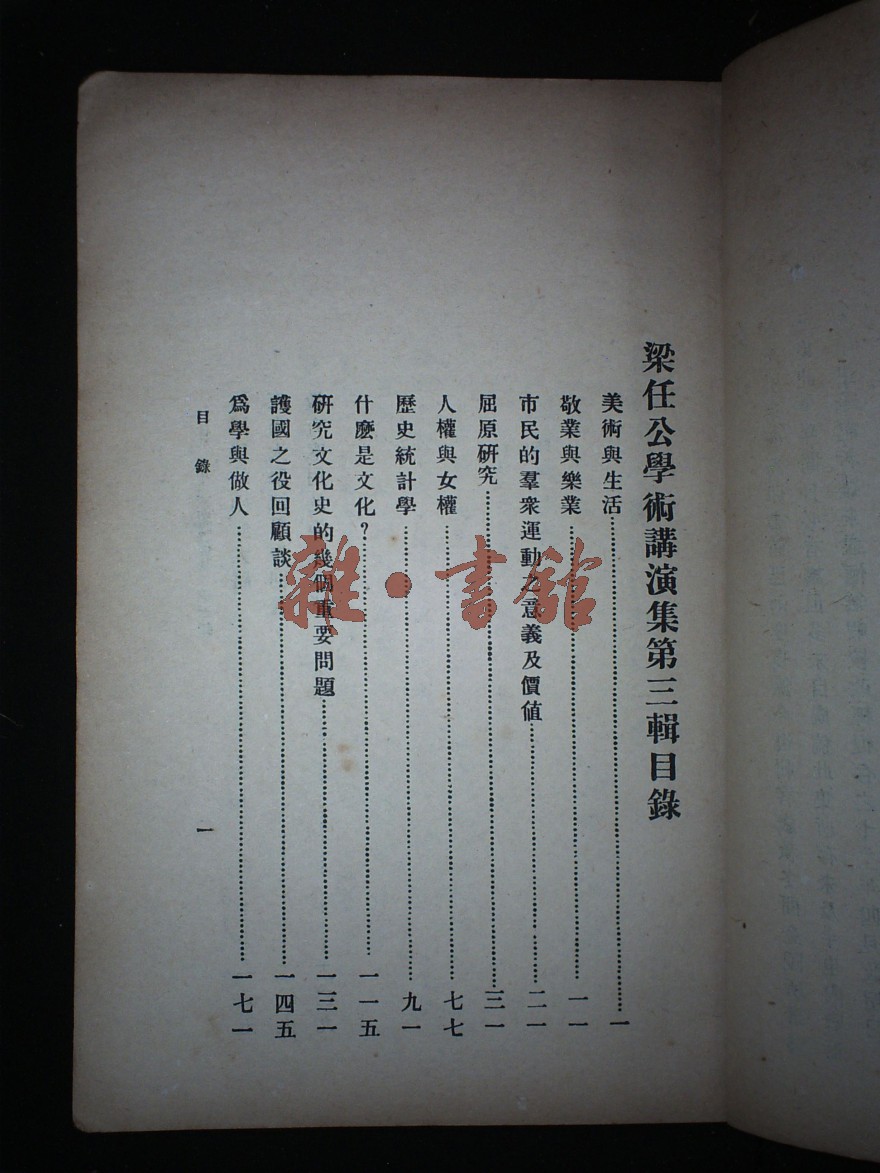 梁任公學術講演集第三輯目錄
美術與生活……一
敬業與樂業……一一
市民的羣衆運動之意義及價值……二一
屈原研究……三一
人權與女權……七七
歷史統計學……九一
什麽是文化?……一一五
研究文化史的幾個重要問題……一三一
護國之役回顧談……一四五
爲學與做人……一七一
目錄
一
雜·書館